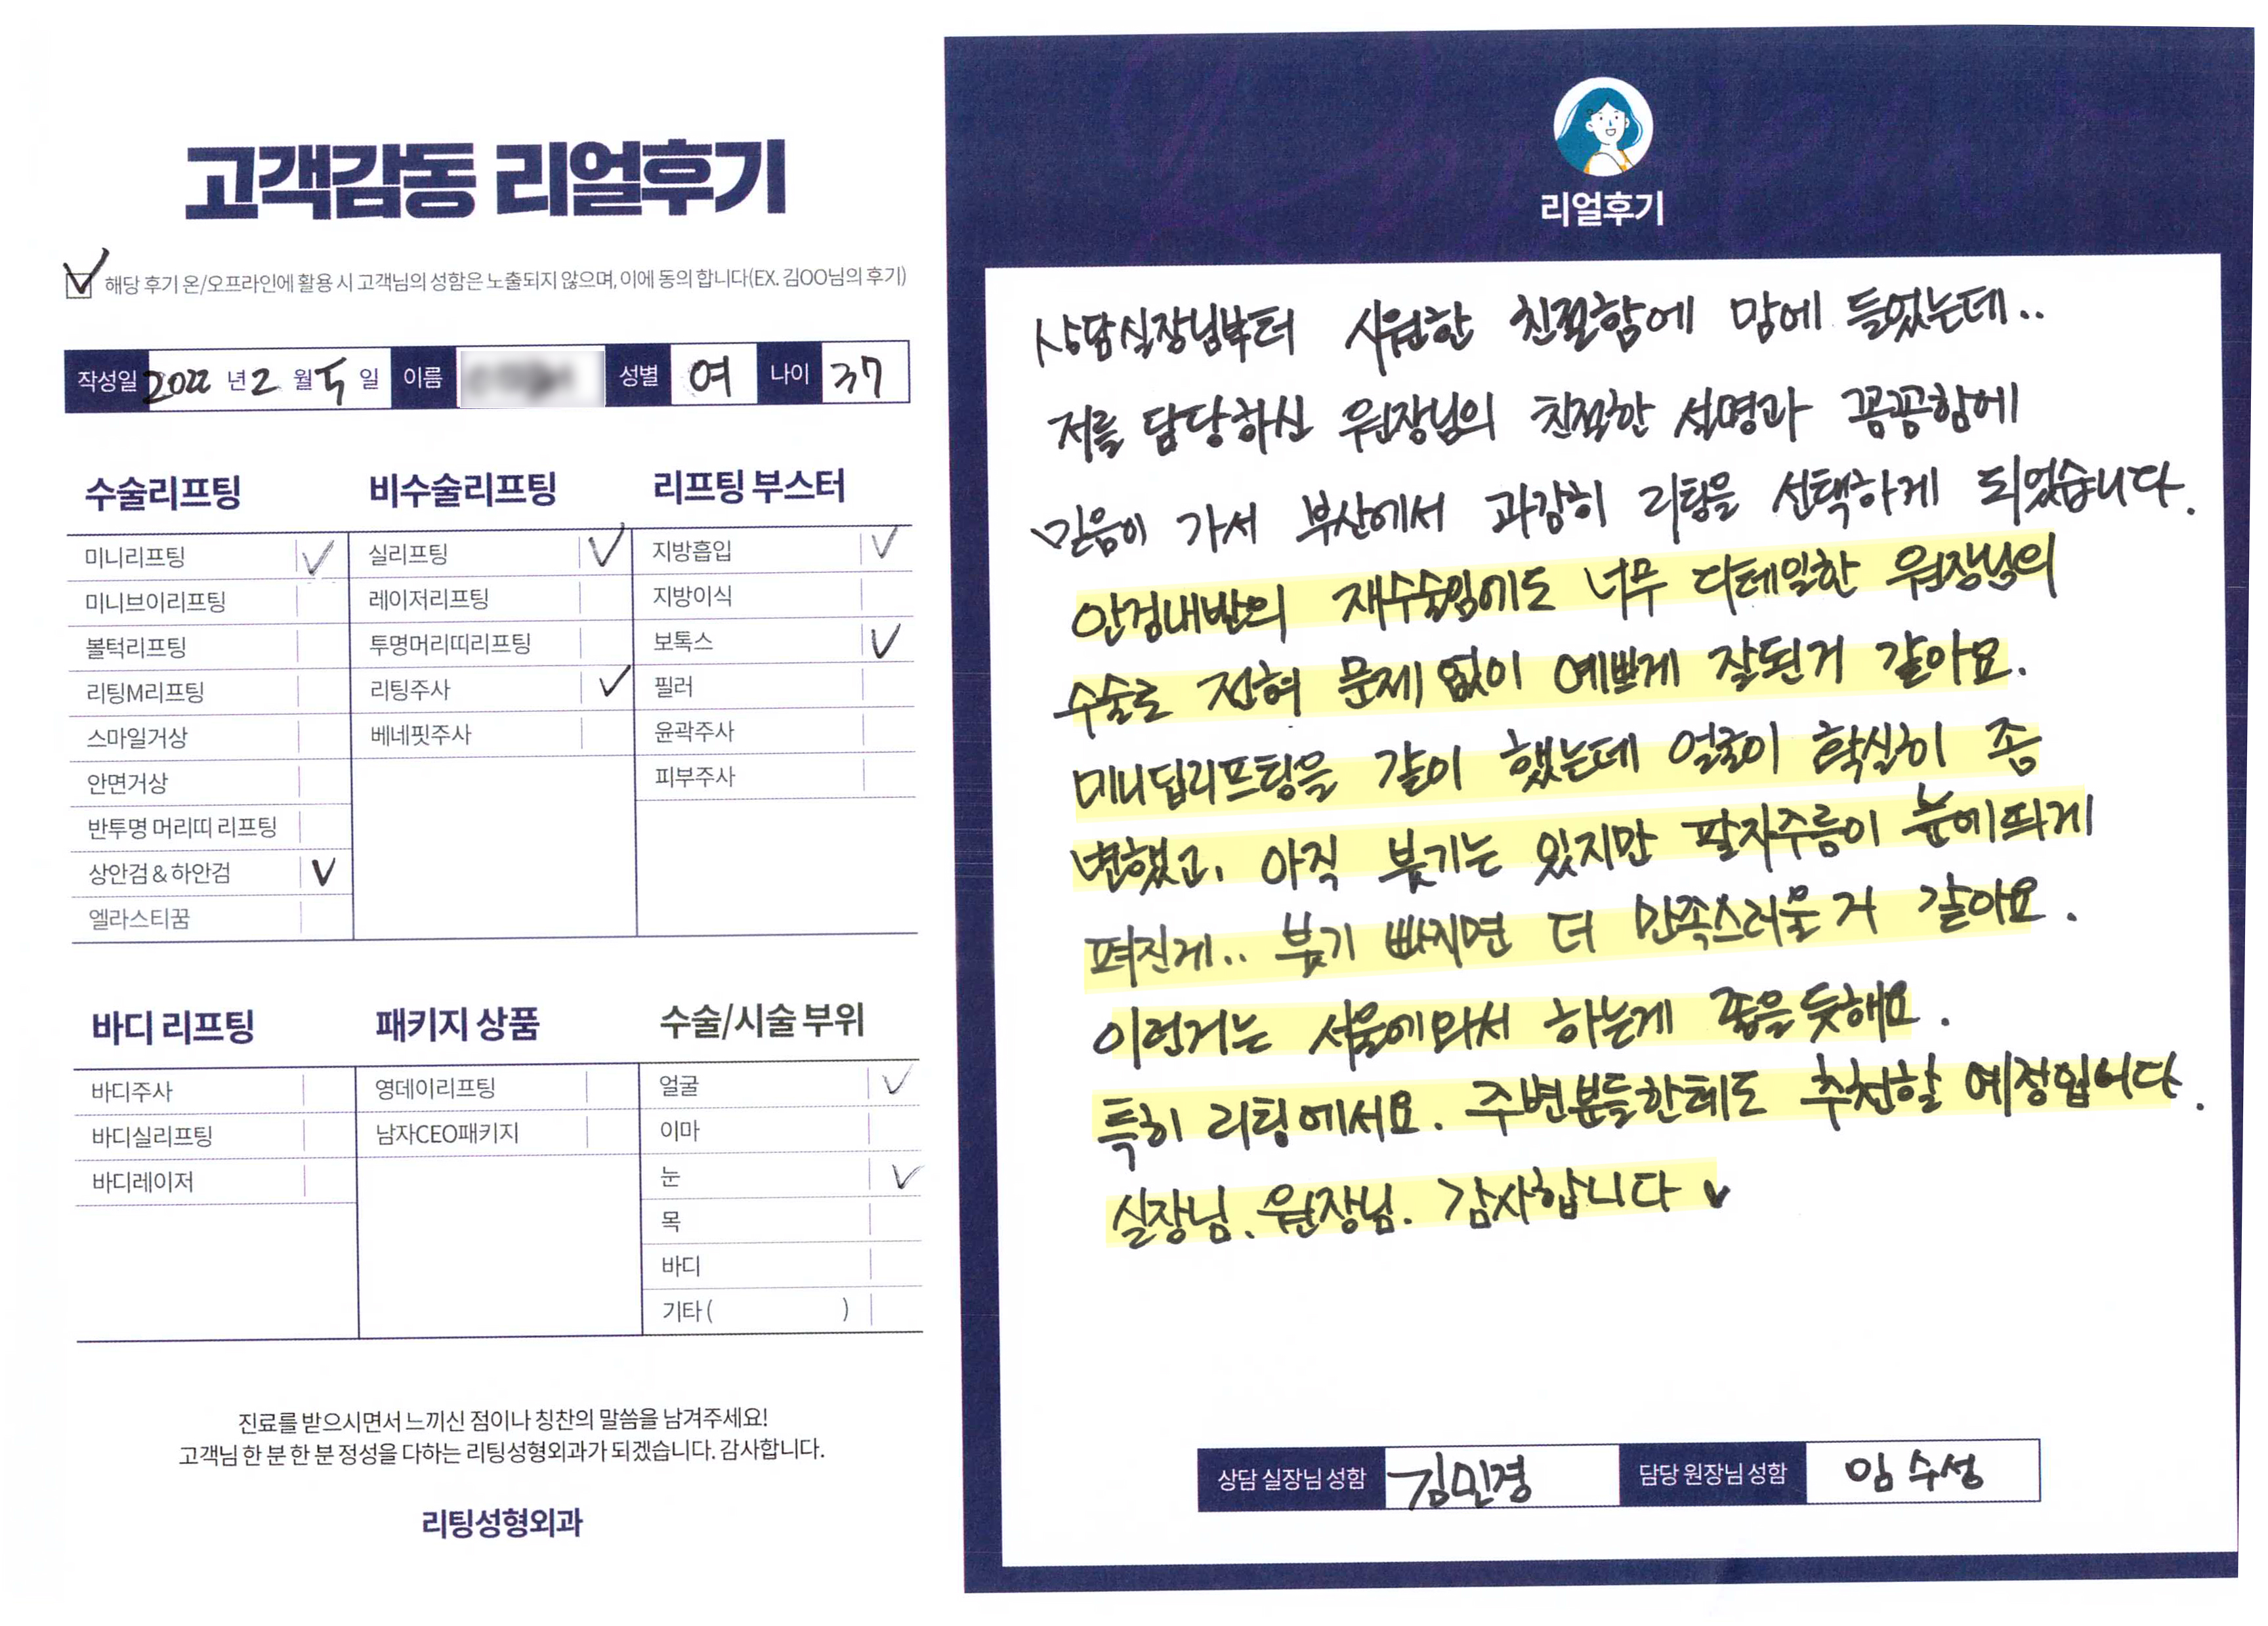 고객감동 리얼후기
해당 후기 온/오프라인에 활용 시 고객님의 성함은 노출되지 않으며, 이에 동의 합니다(EX. 김OO님의 후기)
작성일 2022 년 2 월 5 일 이름 성별 여 나이 37
수술리프팅
미니리프팅
미니브이리프팅
볼턱리프팅
리팅M리프팅
스마일거상
안면거상
반투명 머리띠 리프팅
상안검 & 하안검
엘라스티꿈
비수술리프팅
실리프팅
레이저리프팅
투명머리띠리프팅
리팅주사
베네핏주사
리프팅 부스터
지방흡입
지방이식
보톡스
필러
윤곽주사
피부주사
바디 리프팅
바디주사
바디실리프팅
바디레이저
패키지 상품
영데이리프팅
남자CEO패키지
수술/시술 부위
얼굴
이마
눈
목
바디
기타 ( )
진료를 받으시면서 느끼신 점이나 칭찬의 말씀을 남겨주세요!
고객님 한 분 한 분 정성을 다하는 리팅성형외과가 되겠습니다. 감사합니다.
리팅성형외과
리얼후기
상담실장님부터 시원한 친절함에 맘에 들었는데..
저를 담당하신 원장님의 친절한 설명과 꼼꼼함에
믿음이 가서 부산에서 과감히 리팅을 선택하게 되었습니다.
안검내반의 재수술임에도 너무 디테일한 원장님의
수술로 전혀 문제 없이 예쁘게 잘된거 같아요.
미니딥리프팅을 같이 했는데 얼굴이 확실히 좀
변했고, 아직 붓기는 있지만 팔자주름이 눈에띄게
펴진게.. 붓기 빠지면 더 만족스러울 거 같아요.
이런거는 서울에와서 하는게 좋을듯해요.
특히 리팅에서요. 주변분들한테도 추천할 예정입니다.
실장님, 원장님. 감사합니다
상담 실장님 성함 김민경 담당 원장님 성함 임수성